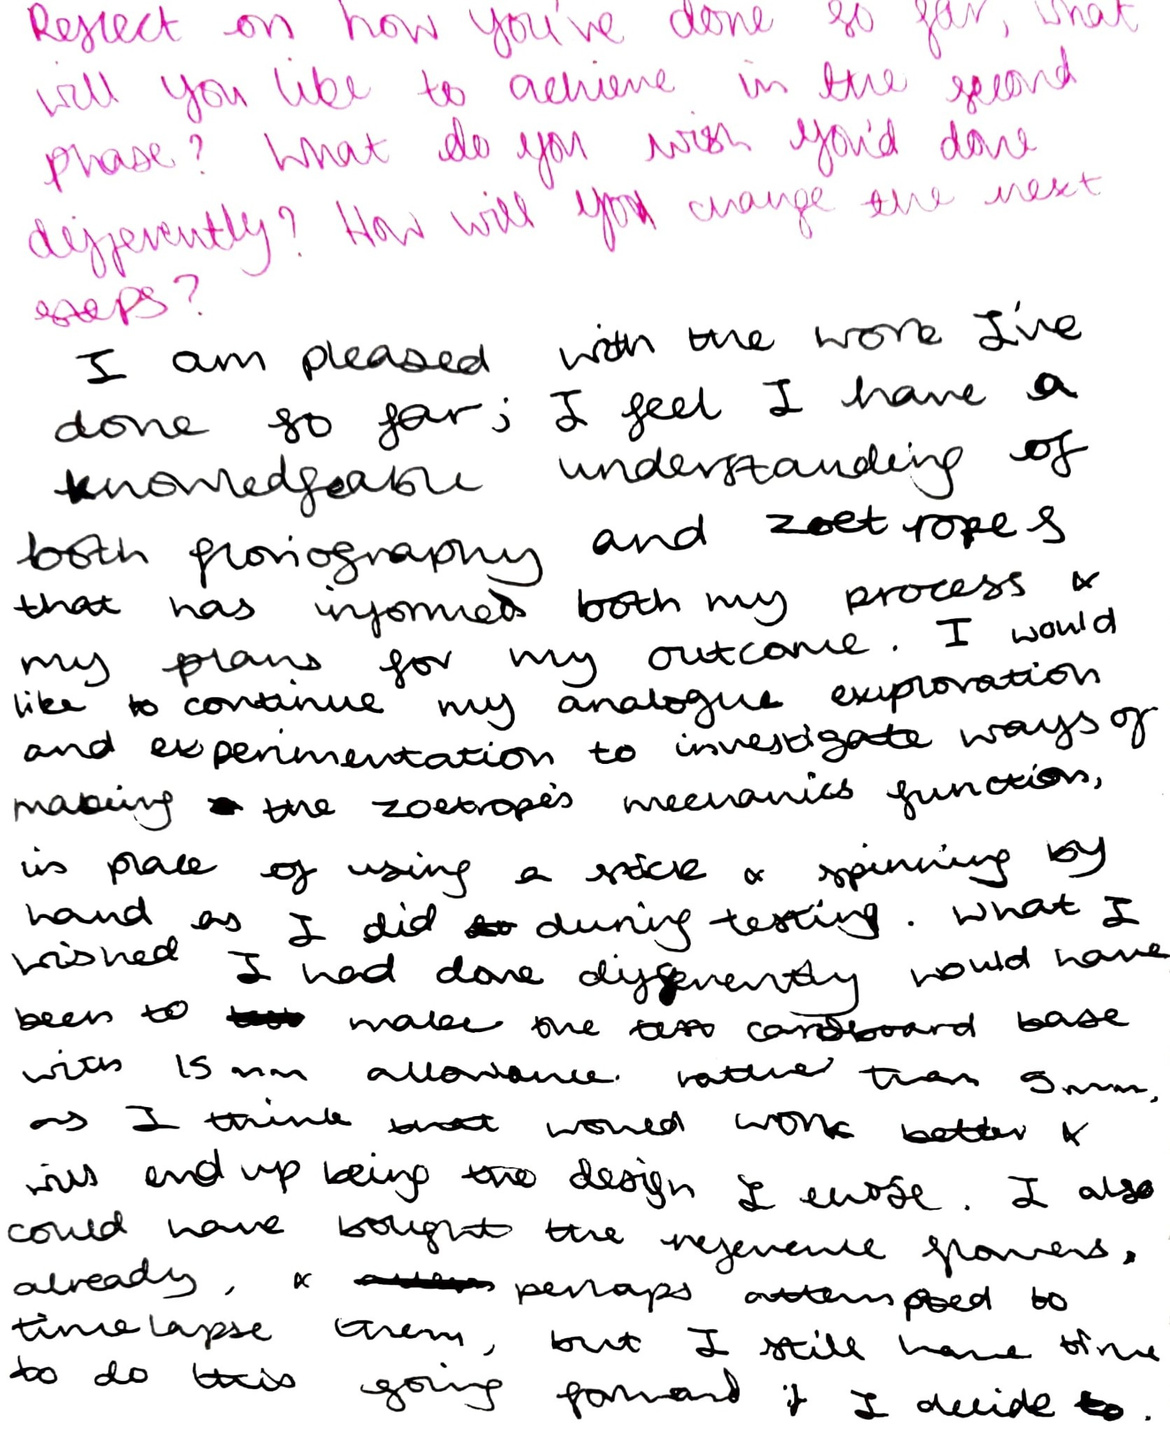 Reflect on how you've done so far, what
will you like to achieve in the second
phase? What do you wish you'd done
differently? How will you change the next
steps?
I am pleased with the work I've
done so far; I feel I have a
knowledgeable understanding of
both floriography and zoetropes
that has informed both my process &
my plans for my outcome. I would
like to continue my analogue exploration
and experimentation to investigate ways of
making the zoetrope's mechanics function,
in place of using a stick & spinning by
hand as I did during testing. What I
wished I had done differently would have
been to make the test cardboard base
with 15mm allowance rather than 5mm,
as I think that would work better &
will end up being the design I chose. I also
could have bought the reference flowers,
already, & perhaps attempted to
timelapse them, but I still have time
to do this going forward if I decide to.